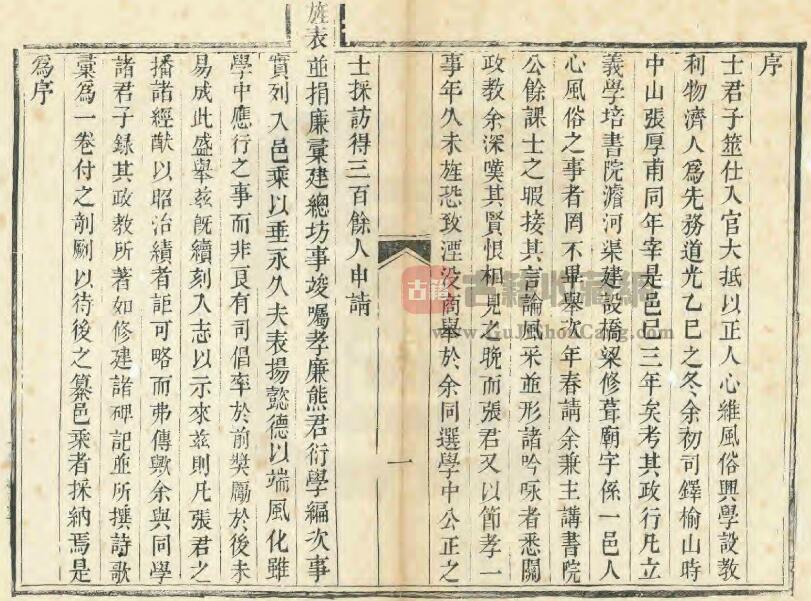 序
士君子筮仕入官大抵以正人心維風俗興學設教
利物濟人爲先務道光乙巳之冬余初司鐸榆山時
中山張厚甫同年宰是邑已三年矣考其政行凡立
義學培書院濬河渠建設橋梁修葺廟宇係一邑人
心風俗之事者罔不畢舉次年春請余兼主講書院
公餘課士之暇接其言論風采並形諸吟咏者悉關
政教余深嘆其賢恨相見之晚而張君又以節孝一
事年久未旌恐致湮没商舉於余同選學中公正之
士採訪得三百餘人申請
旌表並捐廉彙建總坊事竣囑孝廉熊君衍學編次事
實列入邑乘以垂永久夫表揚懿德以端風化雖
學中應行之事而非良有司倡率於前獎勵於後未
易成此盛舉兹旣續刻入志以示來兹則凡張君之
播諸經猷以昭治績者詎可略而弗傳歟余與同學
諸君子錄其政教所著如修建諸碑記並所撰詩歌
彙爲一卷付之剞劂以待後之纂邑乘者採納焉是
爲序
一
古籍
古籍收藏網
www.GuJiShouCang.com